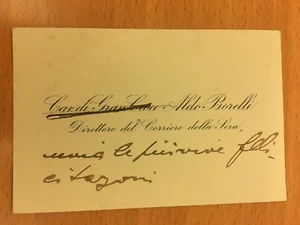 Cav. di Gran Croce Aldo Borelli
Direttore del "Corriere della Sera"
invia le più vive feli-
citazioni